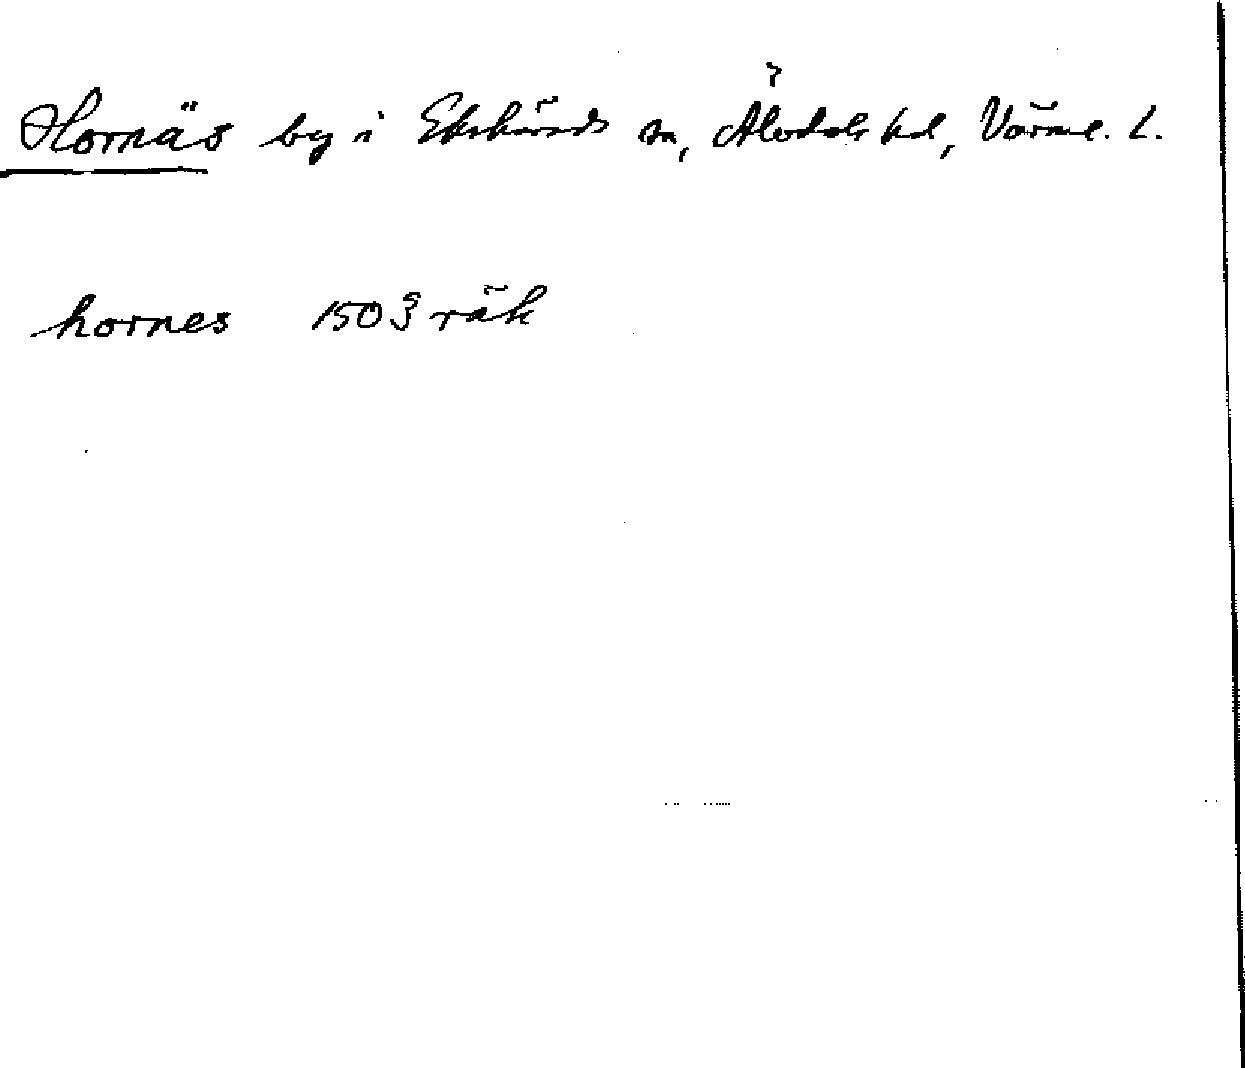 Hornäs by i Ekshärads sn, Älvdals hd, Värml. l.
hornes 1503 räk